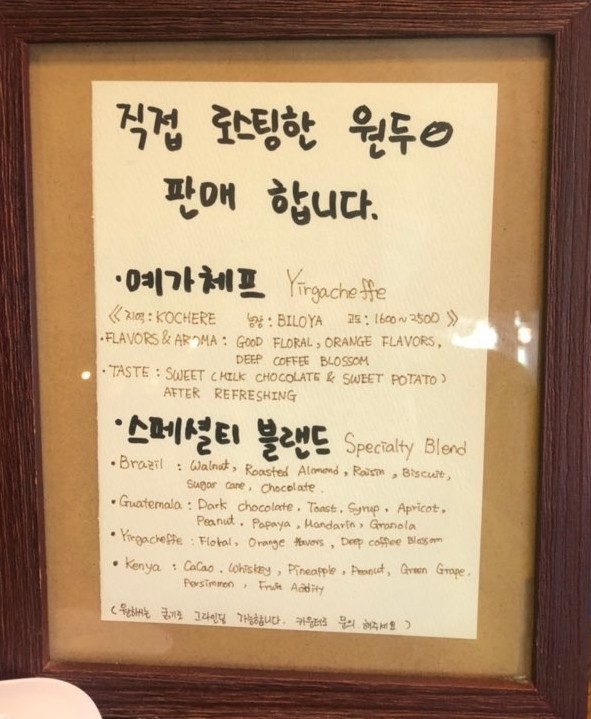 직접 로스팅한 원두
판매 합니다.
·예가체프 Yirgacheffe
《지역: KOCHERE 농장: BILOYA 고도: 1600~2500》
·FLAVORS & AROMA : GOOD FLORAL, ORANGE FLAVORS,
DEEP COFFEE BLOSSOM
·TASTE : SWEET (MILK CHOCOLATE & SWEET POTATO)
AFTER REFRESHING
·스페셜티 블랜드 Specialty Blend
• Brazil : Walnut, Roasted Almond, Raisin, Biscuit,
Sugar cane, Chocolate.
• Guatemala : Dark chocolate, Toast, Syrup, Apricot,
Peanut, Papaya, Mandarin, Granola
• Yirgacheffe : Floral, Orange flavors, Deep coffee Blossom
• Kenya : CaCao, Whiskey, Pineapple, Peanut, Green Grape,
Persimmon, Fruit Acidity
(원하시는 굵기로 그라인딩 가능합니다. 카운터로 문의 해주세요)